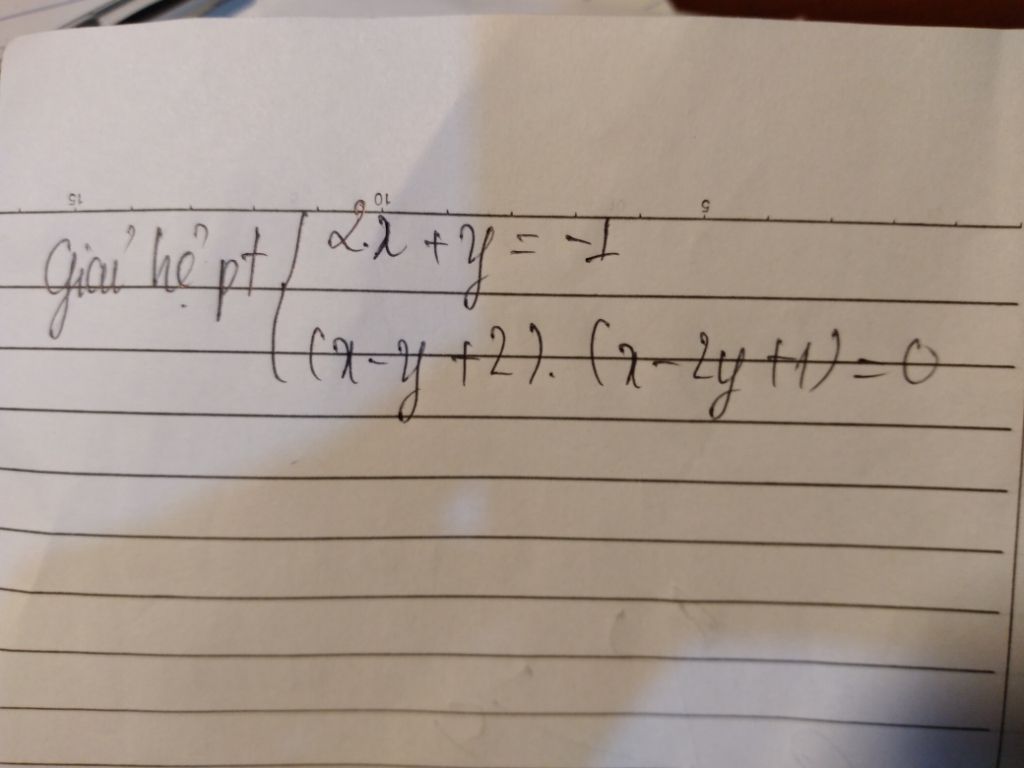 15 10 5
Giải hệ pt { 2.x + y = -1
(x - y + 2). (x - 2y + 1) = 0